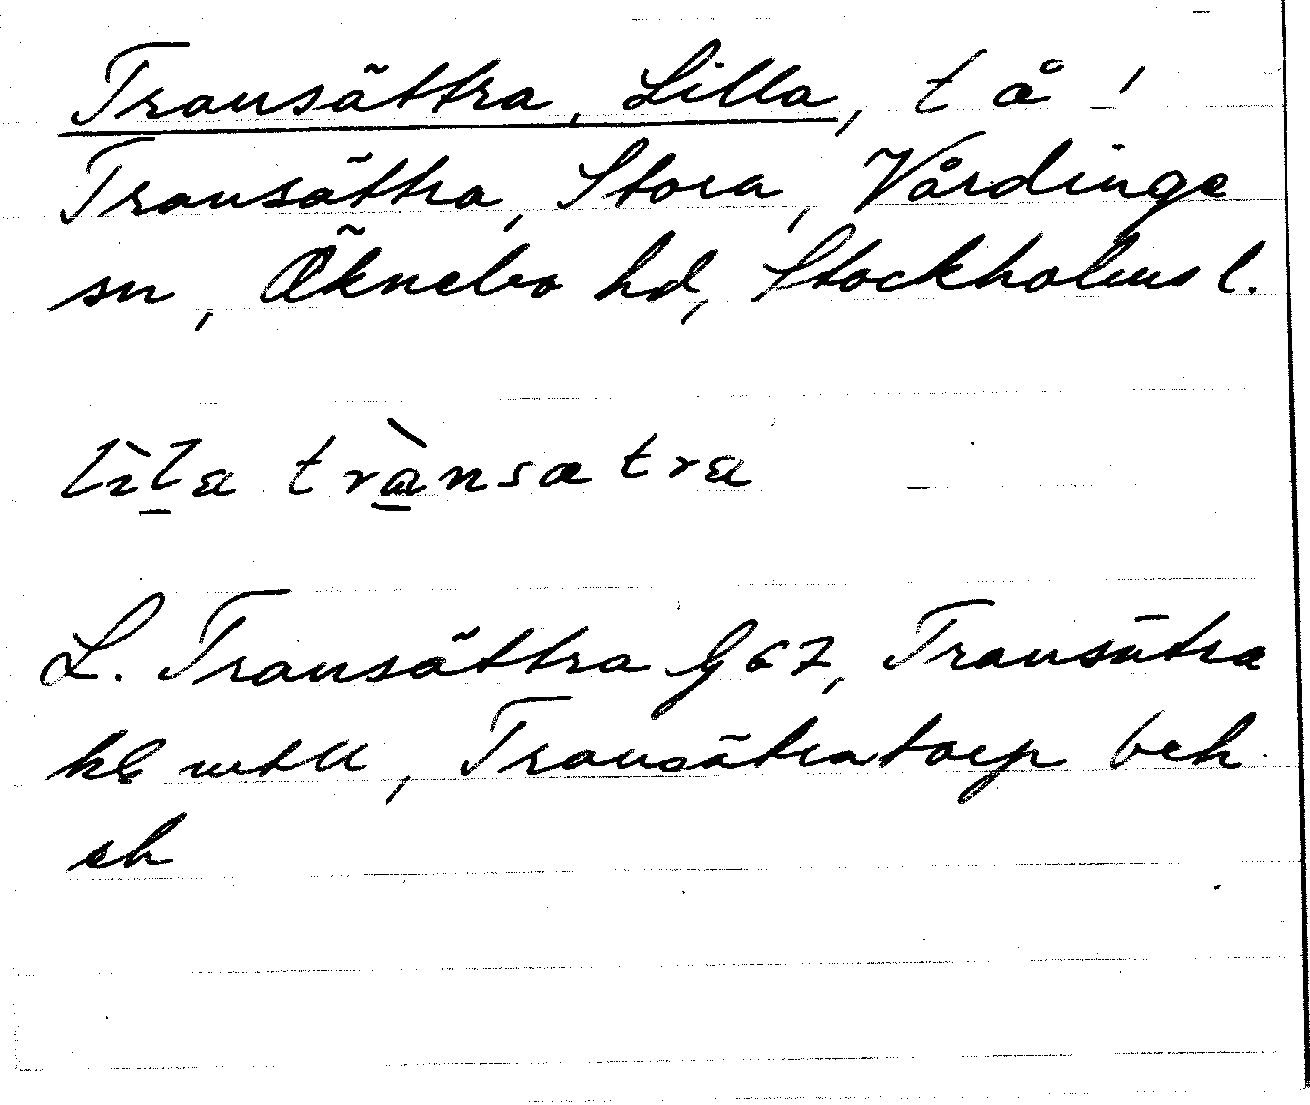 Transättra, Lilla, t å
Transättra, Stora, Vårdinge
sn, Öknebo hd, Stockholms l.
lìla trànsatra
L. Transättra G 67, Transätra
torp beh